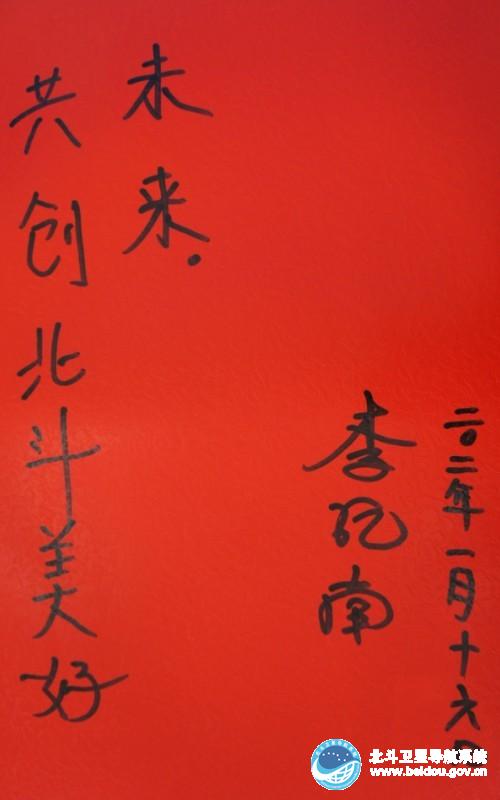 共创北斗美好
未来.
李纪南
二〇一二年一月十六日
北斗卫星导航系统
www.beidou.gov.cn